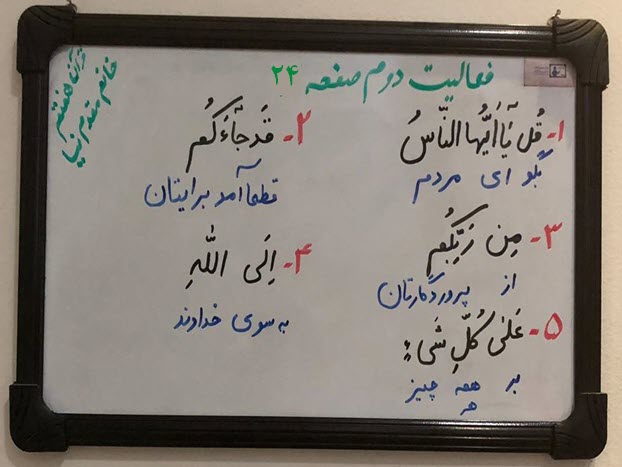 فعالیت دوم صفحه ۲۴
قرآن هفتم
خانم مقدم نیا
۱- قُل يَآ أَيُّهَا النَّاسُ
بگو ای مردم
۲- قَد جَآءَكُم
قطعا آمد برایتان
۳- مِن رَبِّكُم
از پروردگارتان
۴- اِلَى اللّٰهِ
به سوی خداوند
۵- عَلىٰ كُلِّ شَىءٍ
بر همه چیز
هر